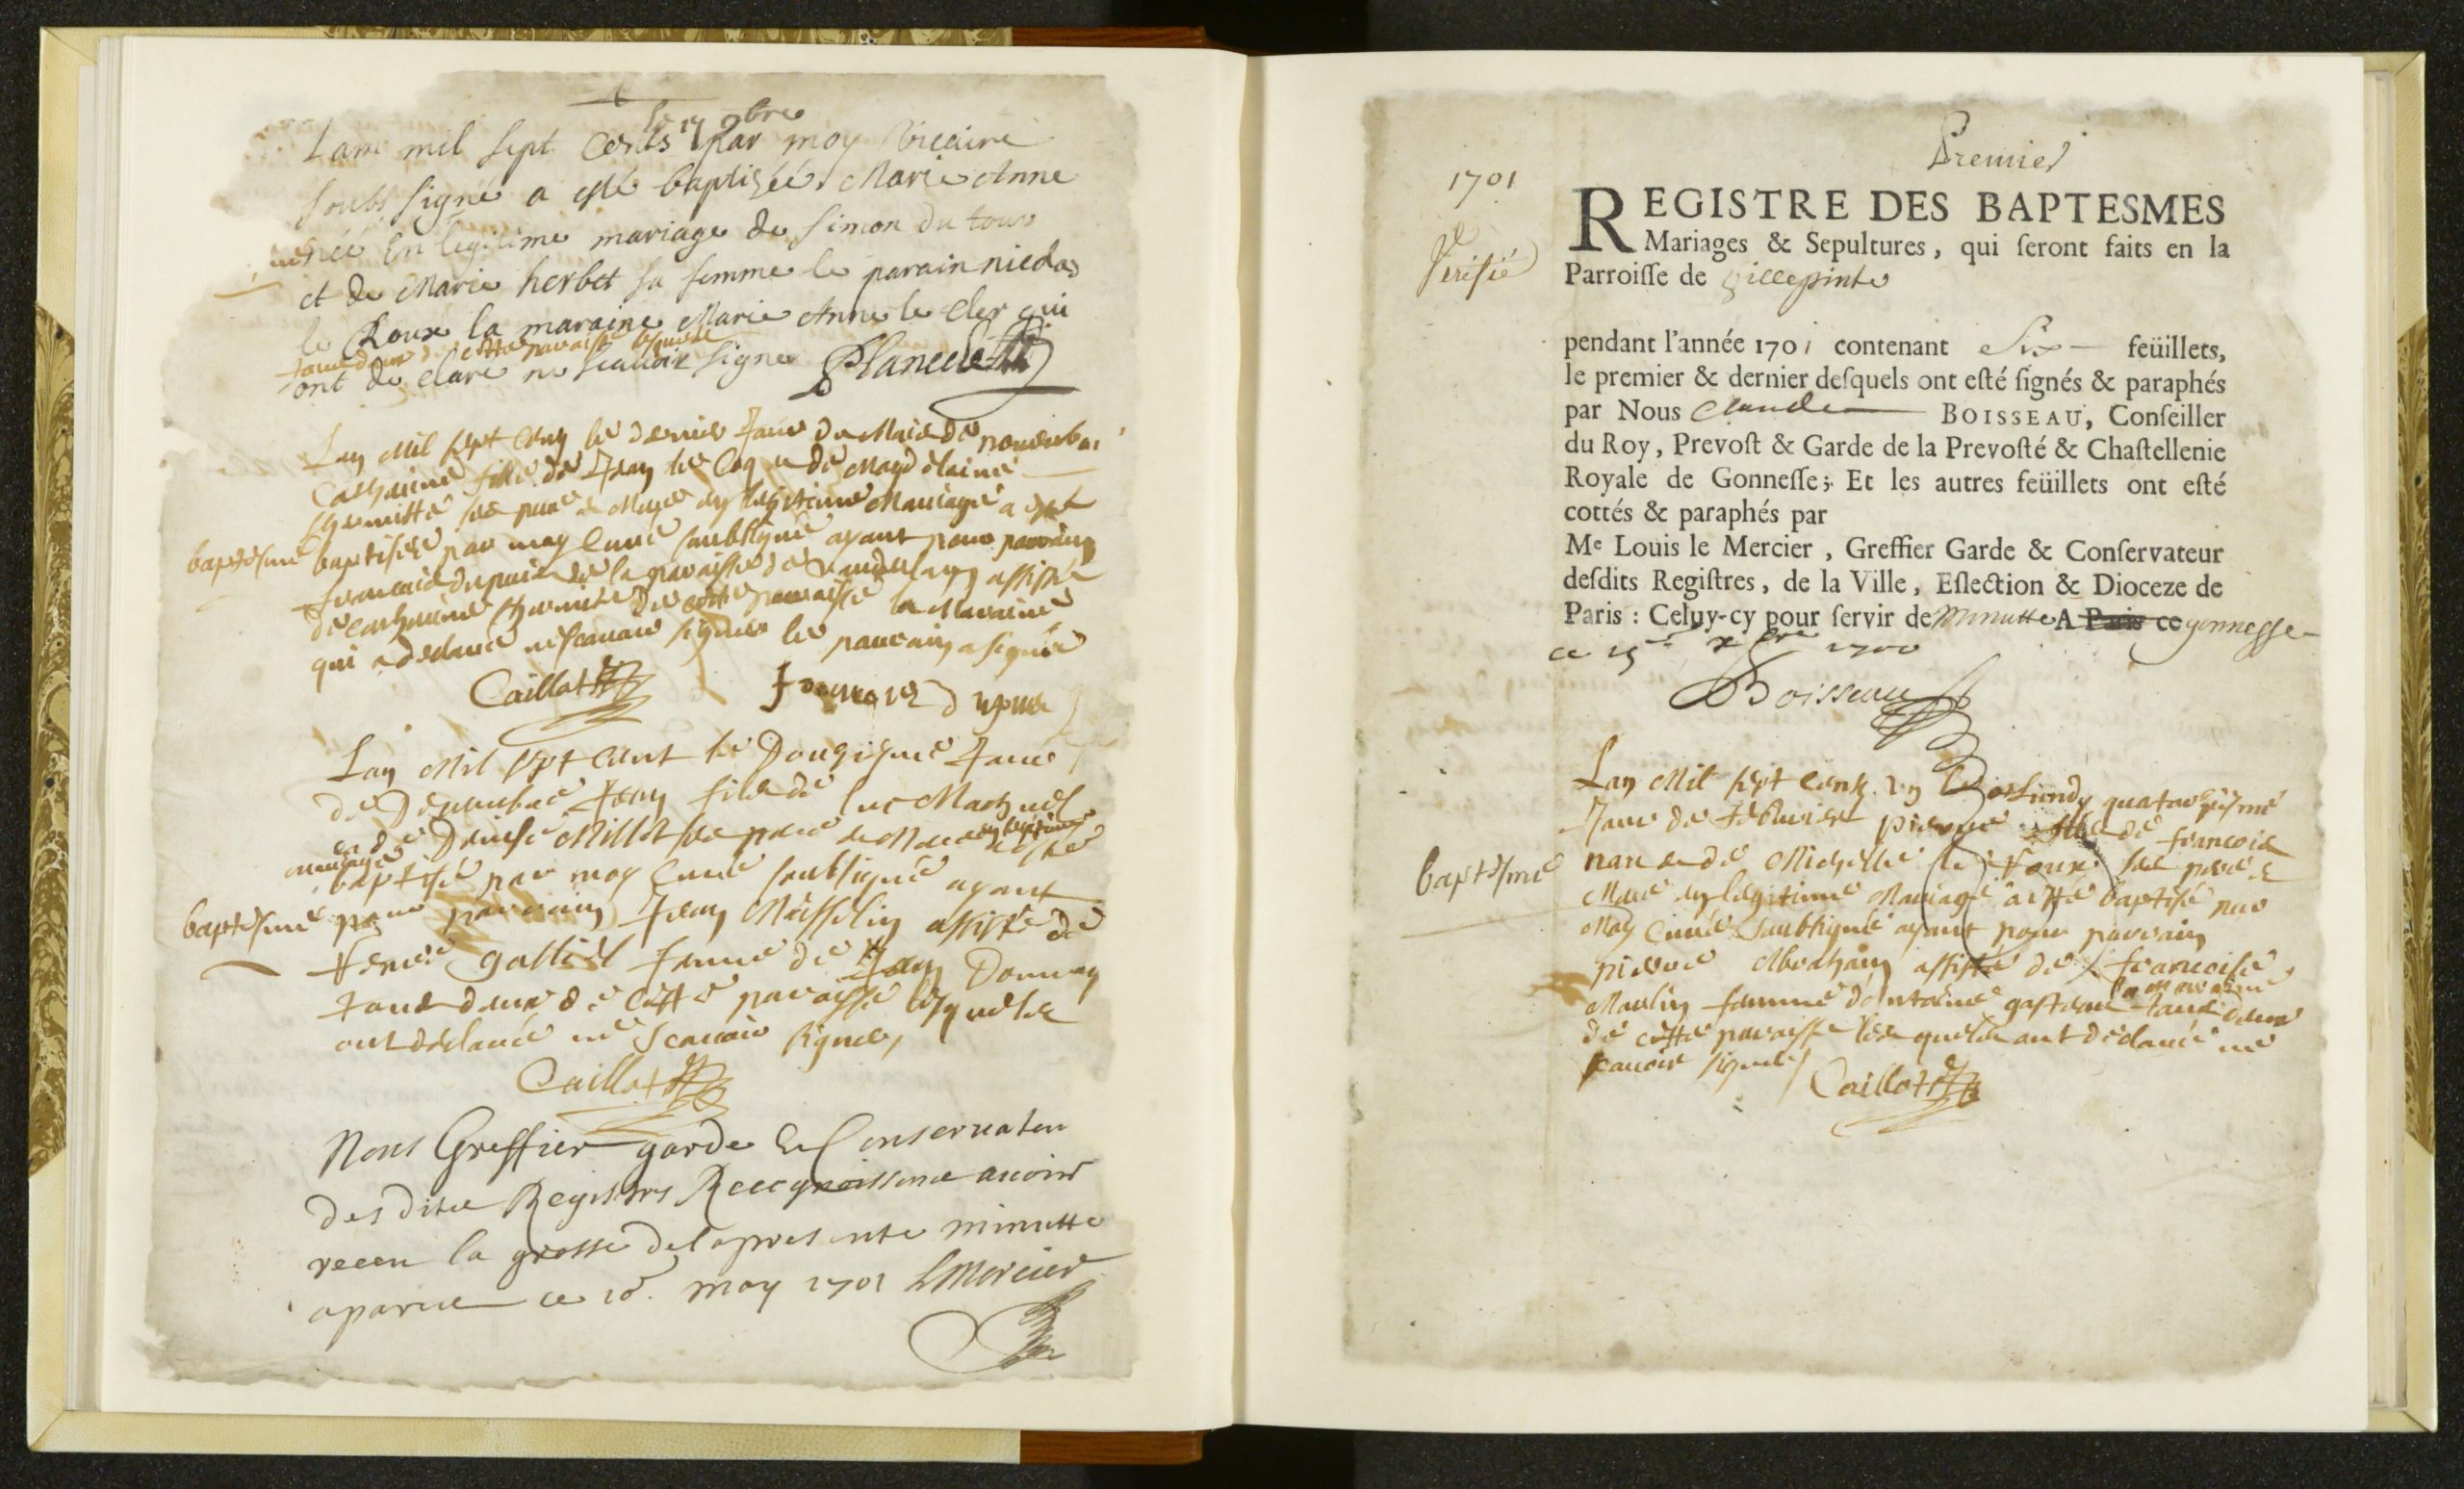 le 17 9bre
Lan mil sept Cents par moy vicaire
soubs signé a esté baptisée Marie Anne
née En legitime mariage de simon du tour
et de Marie herbet sa femme le parain
le Roux la maraine Marie Anne le Cler qui
tous deux de cette paroisse lesquels
ont declaré ne scauoir signer
Lan Mil sept Cens le dernier Jour du Mois de nouembre
Catherine fille de Jean le Coq et de Magdelaine
ses pere et Mere en legitime Mariage a esté
baptesme
baptisée par moy Curé soubsigné ayant pour parrain
francois dupuis de la paroisse de assisté
de catherine de cette paroisse la Maraine
qui a declaré ne scauoir signer le parrain a signé
Caillot
Lan Mil sept Cent le Jour
de Decembre Jean fils de luc
et de Denise Millot ses pere et Mere en legitime
mariage a esté
baptisé par moy Curé soubsigné ayant
baptesme
pour parrain Jean assisté de
femme de Jean
tous deux de cette paroisse lesquels
ont declaré ne scauoir signer
Caillot
Nous Greffier garde et Conseruateur
desdits Registres Recognoissons auoir
receu la grosse de la presente minutte
a paris ce 10 may 1701 LMercier
Premier
1701
Verifié
REGISTRE DES BAPTESMES
Mariages & Sepultures, qui seront faits en la
Parroisse de Villepinte
pendant l'année 1701 contenant Six feüillets,
le premier & dernier desquels ont esté signés & paraphés
par Nous Claude BOISSEAU, Conseiller
du Roy, Prevost & Garde de la Prevosté & Chastellenie
Royale de Gonnesse; Et les autres feüillets ont esté
cottés & paraphés par
Me Louis le Mercier, Greffier Garde & Conservateur
desdits Registres, de la Ville, Eslection & Dioceze de
Paris : Celuy-cy pour servir de Minutte A Paris ce gonnesse
ce 15 xbre 1700
Boisseau
Lan Mil sept Cens un le Lundy quatorziesme
Jour de Feburier pierre fils de francois
et de Michelle le roux ses pere et
baptesme
Mere en legitime Mariage a esté baptisé par
Moy Curé Soubsigné ayant pour parrain
pierre Abraham assisté de francoise
Moulin femme d'antoine la maraine tous deux
de cette paroisse lesquels ont declaré ne
scauoir signer
Caillot